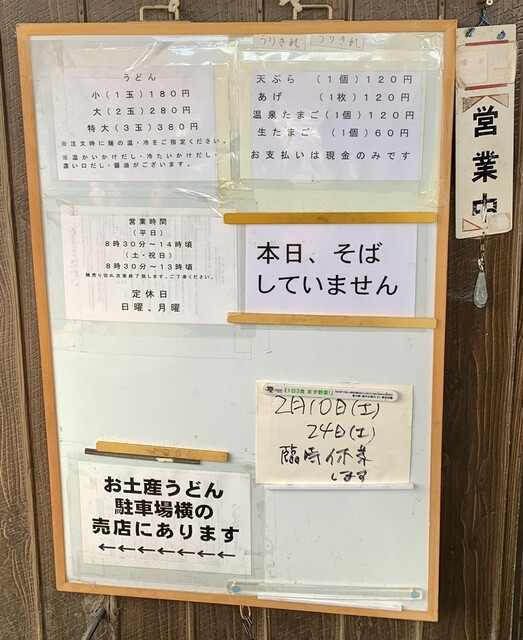 うりきれ
うりきれ
うどん
小(1玉)180円
大(2玉)280円
特大(3玉)380円
※注文時に麺の温・冷をご指定ください。
※温かいかけだし・冷たいかけだし・
濃い口だし・醤油がございます。
天ぷら (1個)120円
あげ (1枚)120円
温泉たまご(1個)120円
生たまご (1個)60円
お支払いは現金のみです
営業中
営業時間
(平日)
8時30分~14時頃
(土・祝日)
8時30分~13時頃
麺売り切れ次第終了致します。ご了承ください。
定休日
日曜、月曜
本日、そば
していません
「1日3食 まず野菜!」
2月10日(土)
24日(土)
臨時休業
します
お土産うどん
駐車場横の
売店にあります
←←←←←←←